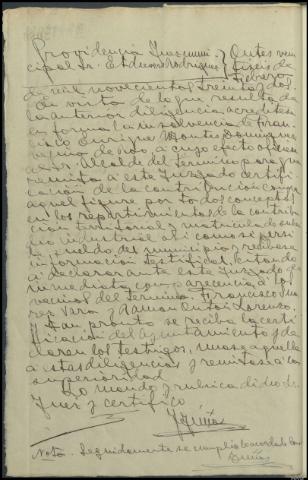 Providencia Juez muni- } Antes veu
cipal Sr. Eduardo Rodriguez } tiseis de
Febrero
de mil novecientos treinta y dos.
En virtud de lo que resulta de
la anterior diligencia, acreditese
en forma la insolvencia de Fran-
cisco Enrique Montes Dominguez
vecino de esto, a cuyo efecto oficiese
al Sr. Alcalde del termino para que
remita a este Juzgado certifi-
cación de la contribución conque
aquel figure por todos conceptos
en los repartimientos de la contri-
bución territorial y matricula de subsi-
dio industrial así como si persi-
be sueldo del municipio y recibase
información testifical, citando
a declarar ante este Juzgado de
inmediata comparecencia a los
vecinos del termino Francisco
Vera y Ramon Lorenzo.
Y tan pronto se reciba la certi-
ficación del Ayuntamiento y de-
claren los testigos, unase aquella
a estas diligencias y remitase a la
superioridad.
Lo mando y rubrica dicho Sr.
Juez y certifico.
Nota. Seguidamente se cumplio lo acordado